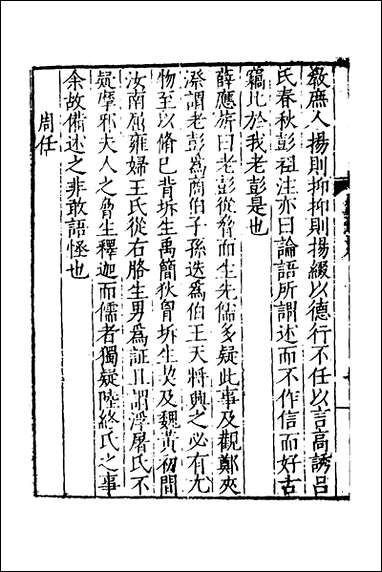 教庶人揚則抑抑則揚綴以德行不任以言高誘呂
氏春秋彭祖注亦曰論語所謂述而不作信而好古
竊比於我老彭是也
薛應旂曰老彭從脅而生先儒多疑此事及觀鄭夾
漈謂老彭為商伯子孫迭為伯王天將興之必有尤
物至以脩己背坼生禹簡狄胷坼生契及魏黃初間
汝南屈雍婦王氏從右胳生男為証且謂浮屠氏不
疑摩邪夫人之脅生釋迦而儒者獨疑陸終氏之事
余故備述之非敢語怪也
周任